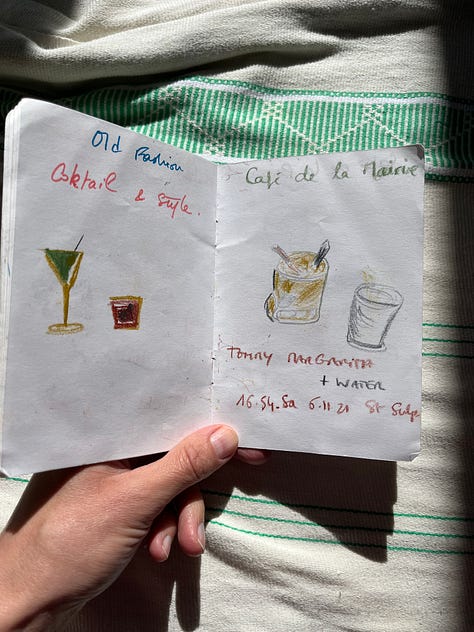 Old Fashion
Cocktail & Style.
Café de la Mairie
TOMMY MARGARITA
+ WATER
16.54. Sa 6.11.21 St Sulp